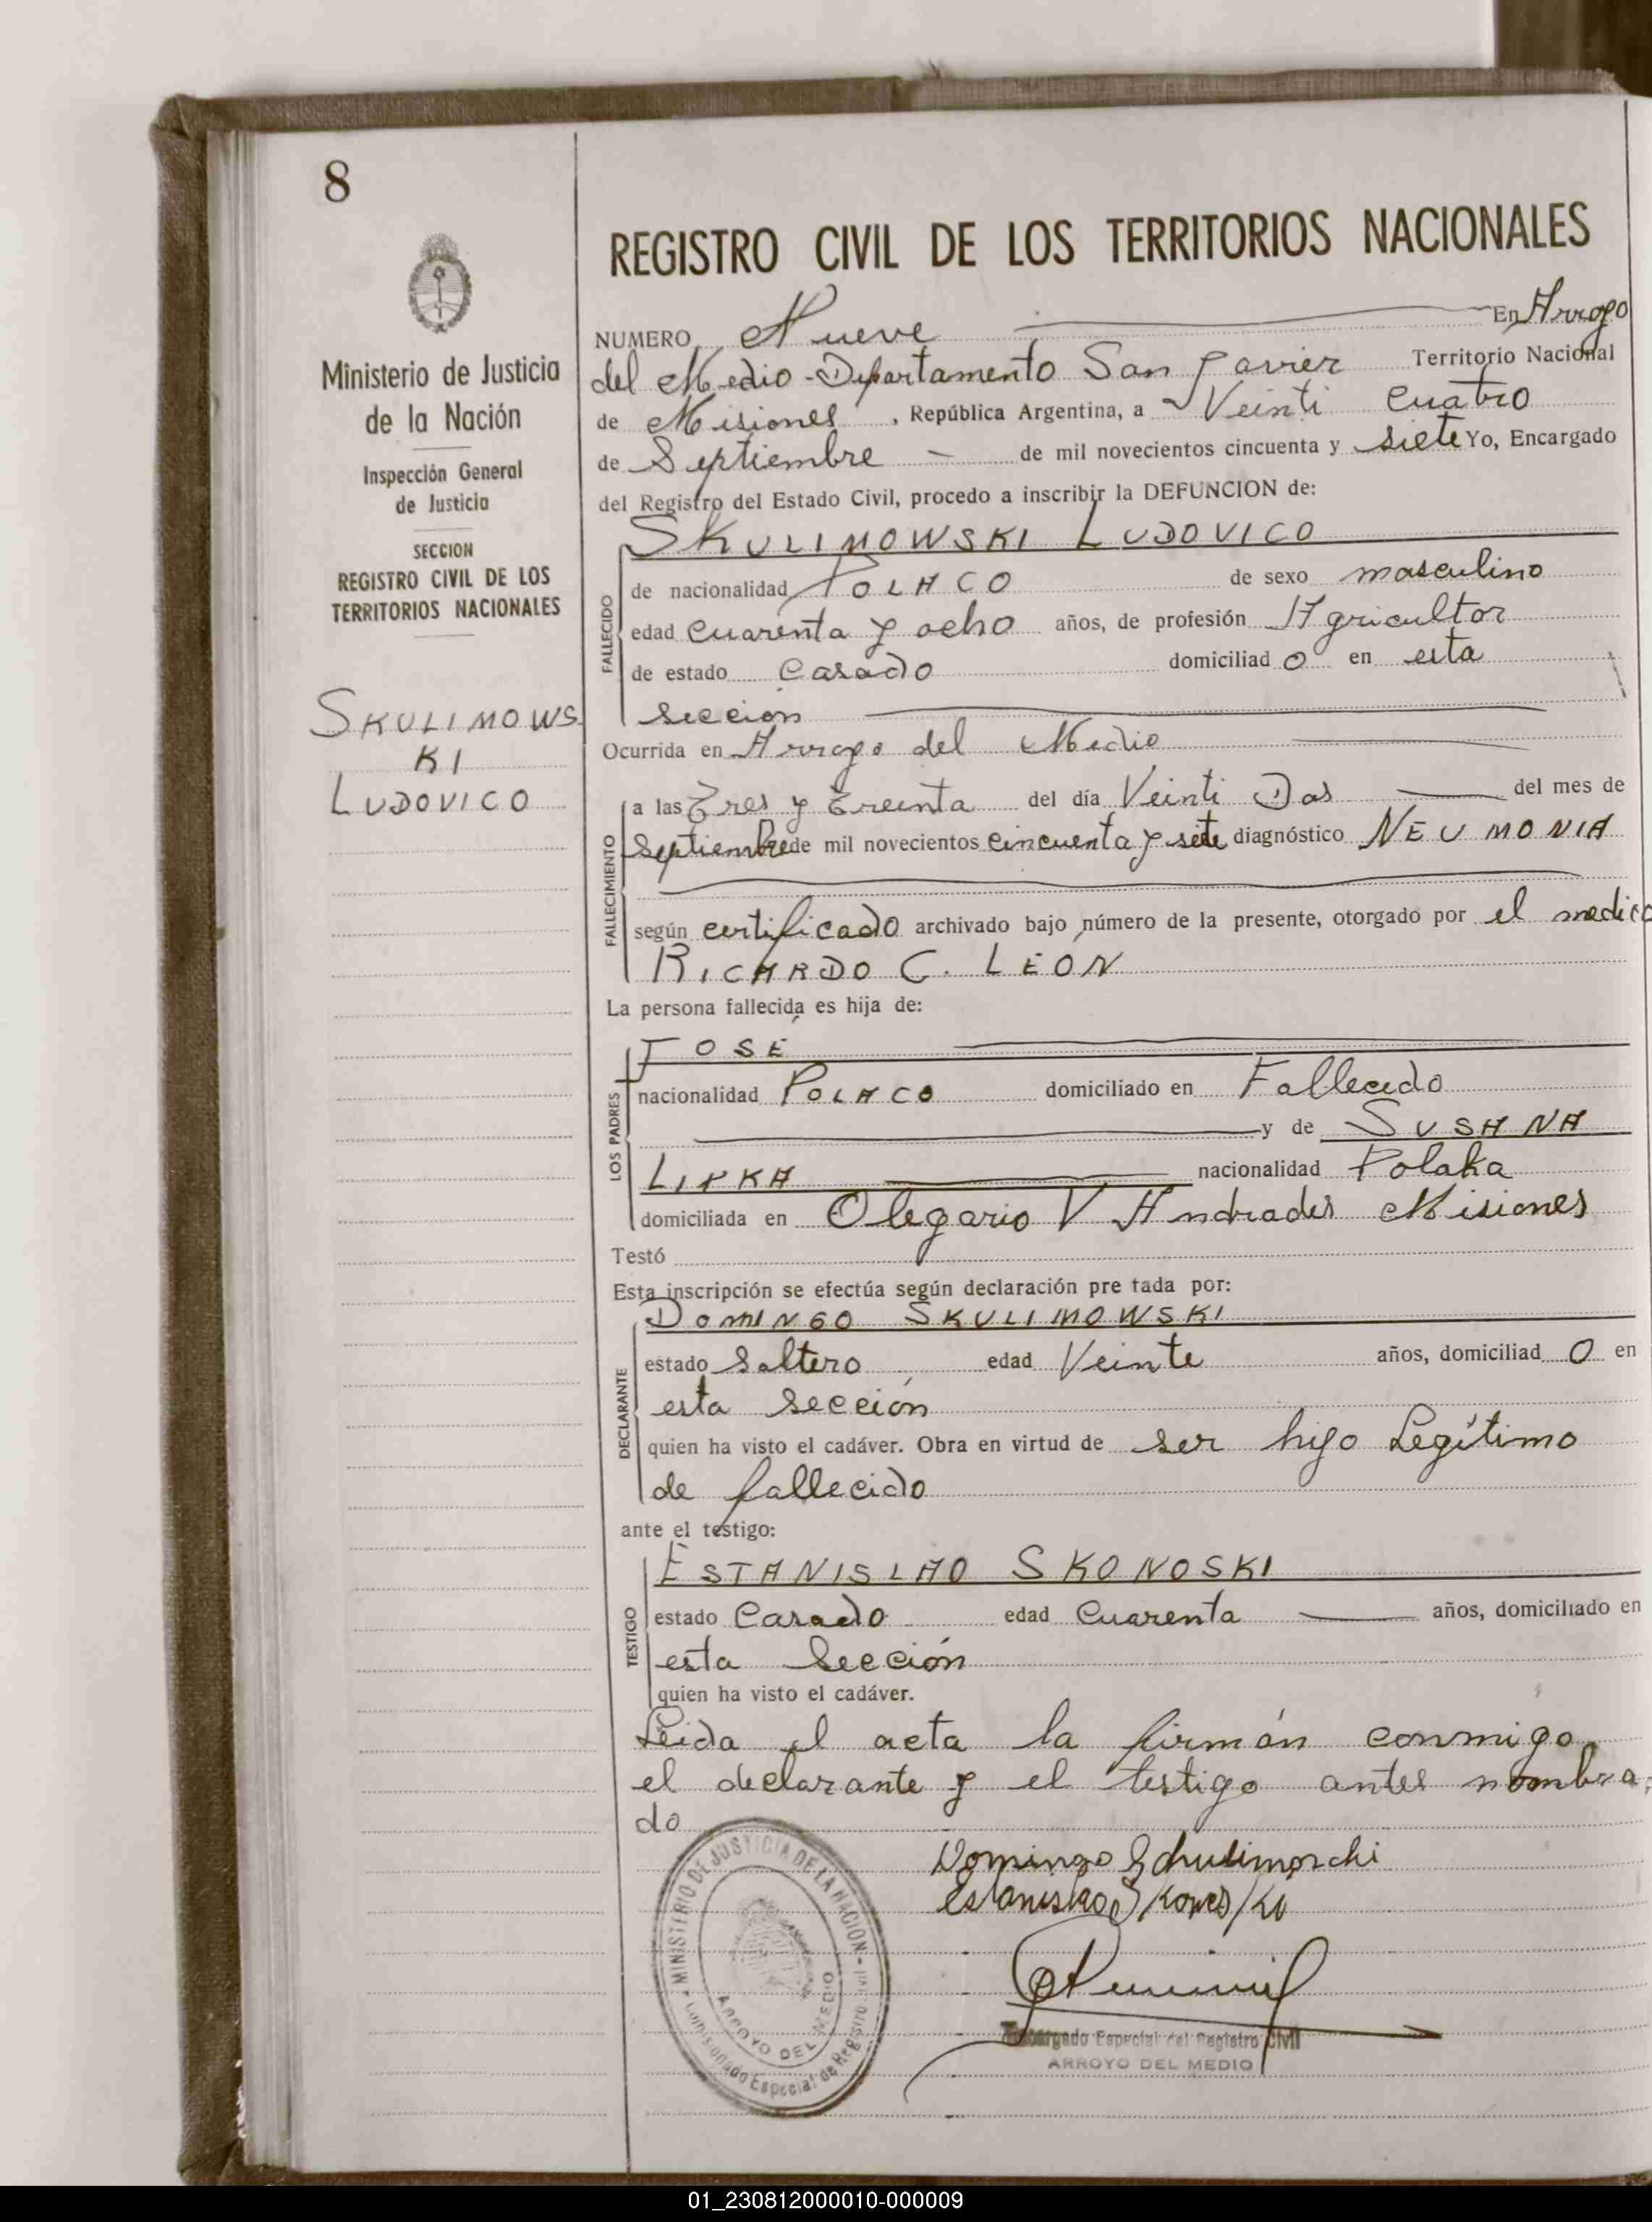 8
Ministerio de Justicia
de la Nación
Inspección General
de Justicia
SECCION
REGISTRO CIVIL DE LOS
TERRITORIOS NACIONALES
SKULIMOWS
KI
LUDOVICO
REGISTRO CIVIL DE LOS TERRITORIOS NACIONALES
NUMERO Nueve En Arroyo
del Medio - Departamento San Javier Territorio Nacional
de Misiones, República Argentina, a Veinti cuatro
de Septiembre - de mil novecientos cincuenta y siete Yo, Encargado
del Registro del Estado Civil, procedo a inscribir la DEFUNCION de:
SKULIMOWSKI LUDOVICO
FALLECIDO
de nacionalidad POLACO de sexo masculino
edad cuarenta y ocho años, de profesión Agricultor
de estado casado domiciliad o en esta
sección
Ocurrida en Arroyo del Medio
FALLECIMIENTO
a las Tres y Treinta del día Veinti Dos del mes de
Septiembre de mil novecientos cincuenta y siete diagnóstico NEUMONIA
según certificado archivado bajo número de la presente, otorgado por el medico
RICARDO C. LEON
La persona fallecida es hija de:
LOS PADRES
JOSÉ
nacionalidad POLACO domiciliado en Fallecido
y de SUSANA
LIPKA nacionalidad Polaka
domiciliada en Olegario V Andrades Misiones
Testó
Esta inscripción se efectúa según declaración pre tada por:
DECLARANTE
DOMINGO SKULIMOWSKI
estado Soltero edad Veinte años, domiciliad o en
esta sección
quien ha visto el cadáver. Obra en virtud de ser hijo Legítimo
de fallecido
ante el testigo:
TESTIGO
ESTANISLAO SKONOSKI
estado Casado edad Cuarenta años, domiciliado en
esta Sección
quien ha visto el cadáver.
Leida el acta la firmán conmigo
el declarante y el testigo antes nombra-
do
MINISTERIO DE JUSTICIA DE LA NACION
Comisionado Especial de Registro Civil
ARROYO DEL MEDIO
Domingo
Estanislao
Encargado Especial del Registro Civil
ARROYO DEL MEDIO
01_230812000010-000009